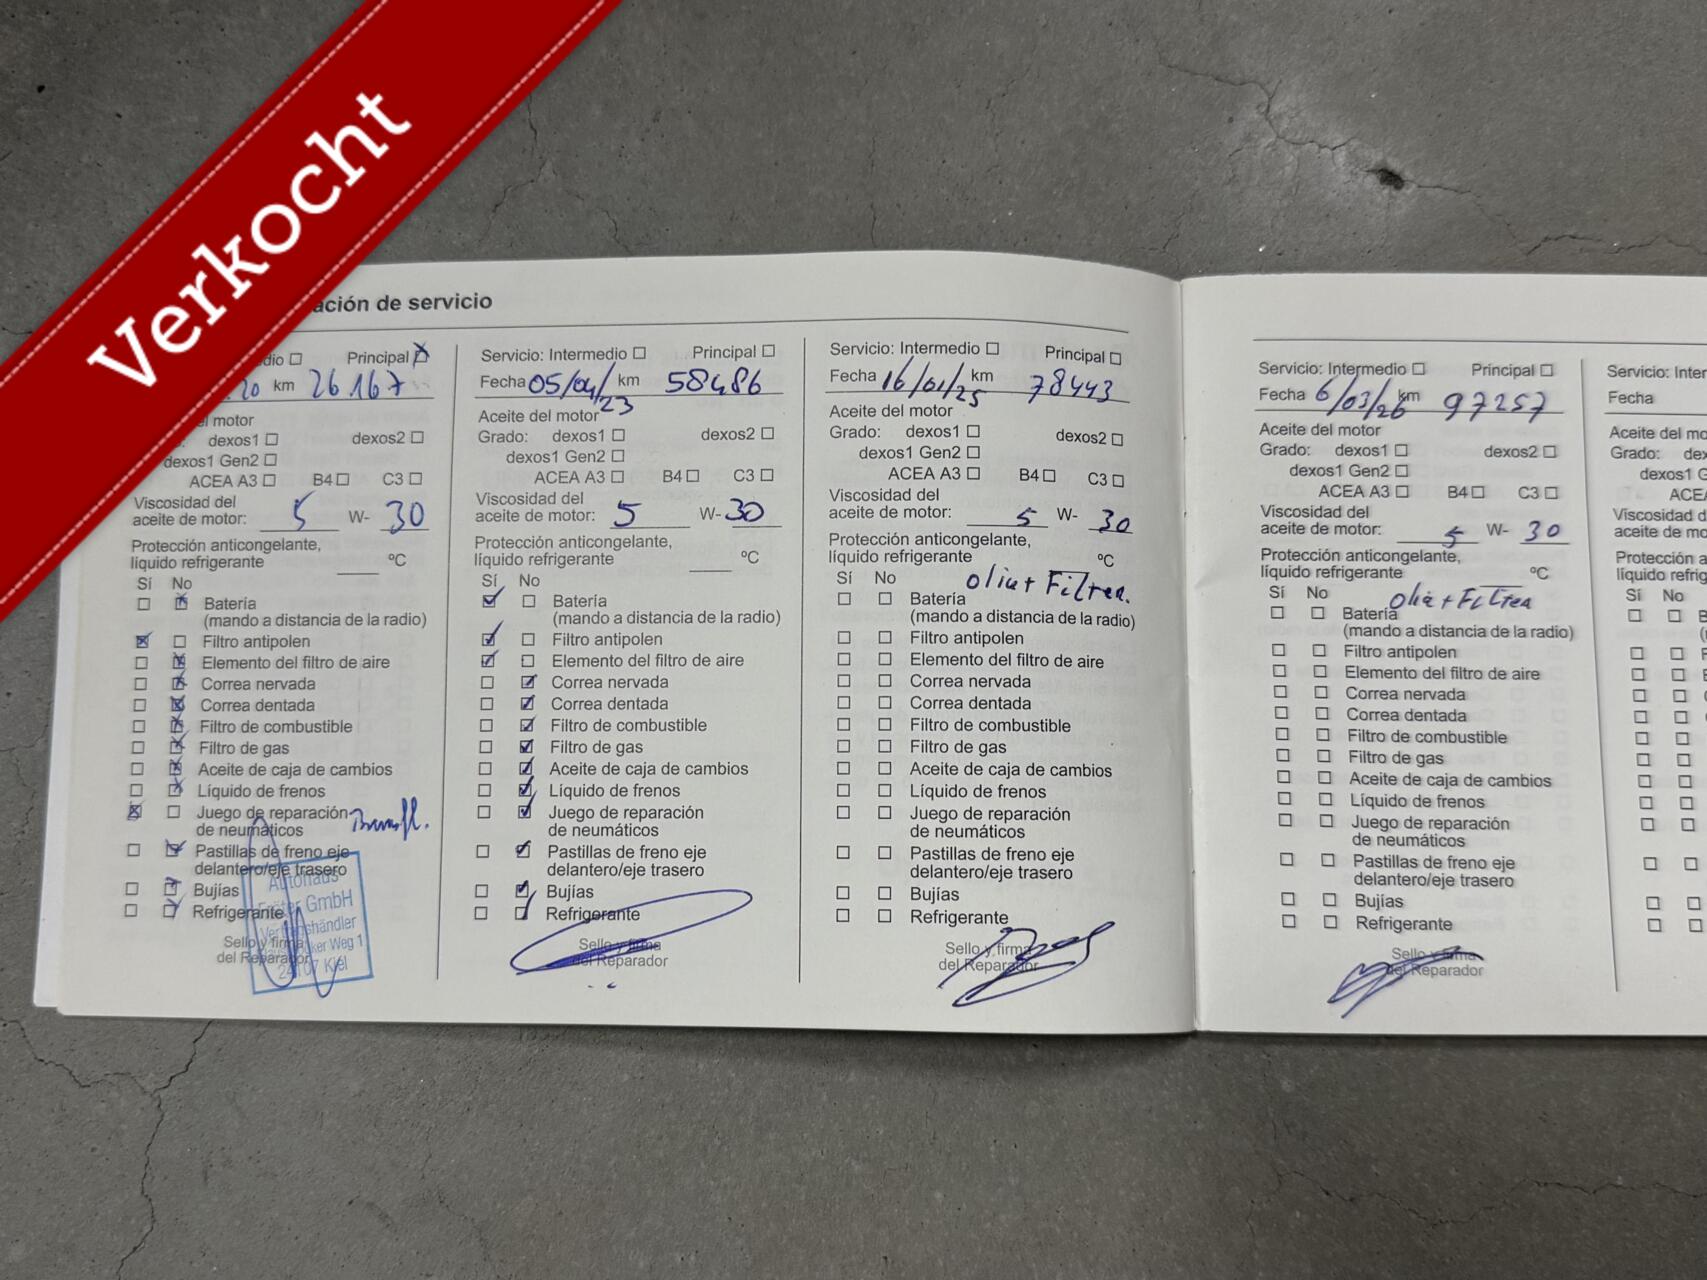 Verkocht
ación de servicio
dio ☐ Principal ☒
20 km 26167
el motor
dexos1 ☐ dexos2 ☐
dexos1 Gen2 ☐
ACEA A3 ☐ B4 ☐ C3 ☐
Viscosidad del
aceite de motor: 5 W- 30
Protección anticongelante,
líquido refrigerante ____ ºC
Sí No
☐ ☒ Batería
(mando a distancia de la radio)
☒ ☐ Filtro antipolen
☐ ☒ Elemento del filtro de aire
☐ ☒ Correa nervada
☐ ☒ Correa dentada
☐ ☒ Filtro de combustible
☐ ☒ Filtro de gas
☐ ☒ Aceite de caja de cambios
☐ ☒ Líquido de frenos
☒ ☐ Juego de reparación
de neumáticos
☐ ☒ Pastillas de freno eje
delantero/eje trasero
☐ ☒ Bujías
☐ ☒ Refrigerante
Sello y firma
del Reparador
Autohaus
GmbH
Vertragshändler
Weg 1
24107 Kiel
Servicio: Intermedio ☐ Principal ☐
Fecha 05/04/23 km 58486
Aceite del motor
Grado: dexos1 ☐ dexos2 ☐
dexos1 Gen2 ☐
ACEA A3 ☐ B4 ☐ C3 ☐
Viscosidad del
aceite de motor: 5 W- 30
Protección anticongelante,
líquido refrigerante ____ ºC
Sí No
☑ ☐ Batería
(mando a distancia de la radio)
☑ ☐ Filtro antipolen
☑ ☐ Elemento del filtro de aire
☐ ☑ Correa nervada
☐ ☑ Correa dentada
☐ ☑ Filtro de combustible
☐ ☑ Filtro de gas
☐ ☑ Aceite de caja de cambios
☐ ☑ Líquido de frenos
☐ ☑ Juego de reparación
de neumáticos
☐ ☑ Pastillas de freno eje
delantero/eje trasero
☐ ☑ Bujías
☐ ☑ Refrigerante
Sello y firma
del Reparador
Servicio: Intermedio ☐ Principal ☐
Fecha 16/01/25 km 78443
Aceite del motor
Grado: dexos1 ☐ dexos2 ☐
dexos1 Gen2 ☐
ACEA A3 ☐ B4 ☐ C3 ☐
Viscosidad del
aceite de motor: 5 W- 30
Protección anticongelante,
líquido refrigerante ºC
Sí No olie + Filter.
☐ ☐ Batería
(mando a distancia de la radio)
☐ ☐ Filtro antipolen
☐ ☐ Elemento del filtro de aire
☐ ☐ Correa nervada
☐ ☐ Correa dentada
☐ ☐ Filtro de combustible
☐ ☐ Filtro de gas
☐ ☐ Aceite de caja de cambios
☐ ☐ Líquido de frenos
☐ ☐ Juego de reparación
de neumáticos
☐ ☐ Pastillas de freno eje
delantero/eje trasero
☐ ☐ Bujías
☐ ☐ Refrigerante
Sello y firma
del Reparador
Servicio: Intermedio ☐ Principal ☐
Fecha 6/03/26 km 97257
Aceite del motor
Grado: dexos1 ☐ dexos2 ☐
dexos1 Gen2 ☐
ACEA A3 ☐ B4 ☐ C3 ☐
Viscosidad del
aceite de motor: 5 W- 30
Protección anticongelante,
líquido refrigerante ºC
Sí No olie + Filter
☐ ☐ Batería
(mando a distancia de la radio)
☐ ☐ Filtro antipolen
☐ ☐ Elemento del filtro de aire
☐ ☐ Correa nervada
☐ ☐ Correa dentada
☐ ☐ Filtro de combustible
☐ ☐ Filtro de gas
☐ ☐ Aceite de caja de cambios
☐ ☐ Líquido de frenos
☐ ☐ Juego de reparación
de neumáticos
☐ ☐ Pastillas de freno eje
delantero/eje trasero
☐ ☐ Bujías
☐ ☐ Refrigerante
Sello y firma
del Reparador
Servicio: Inter
Fecha
Aceite del mo
Grado: dex
dexos1 G
ACEA
Viscosidad d
aceite de mo
Protección a
líquido refrig
Sí No